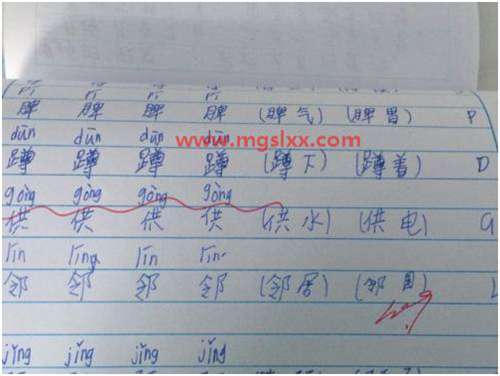 脾 脾 脾 脾 (脾气) (脾胃) P
dūn dūn dūn dūn
www.mgslxx.com
蹲 蹲 蹲 蹲 (蹲下) (蹲着) D
gòng gòng gòng gòng
供 供 供 供 (供水) (供电) G
lín líng lín lín
邻 邻 邻 邻 (邻居) (邻国) L
jǐng jǐng jǐng jǐng